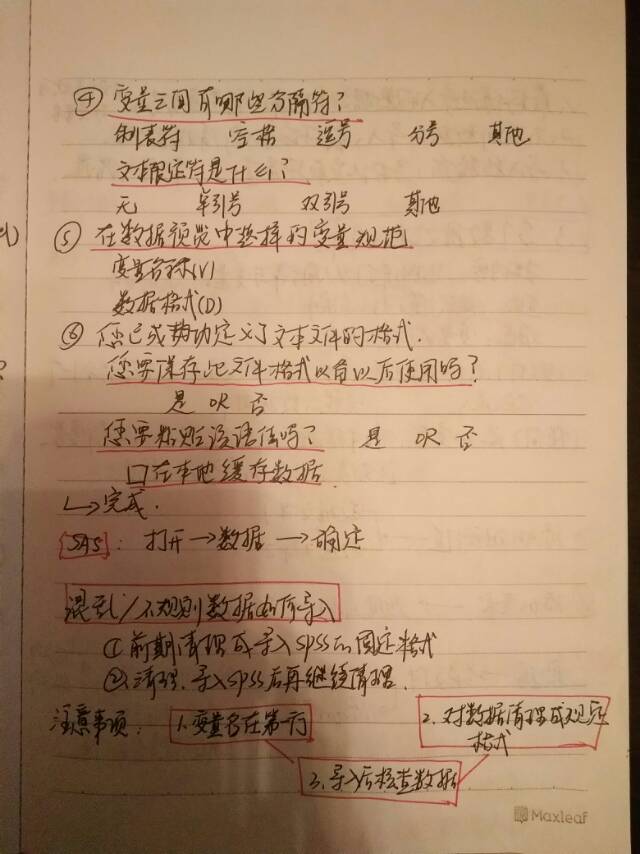 ④ 变量之间有哪些分隔符?
制表符 空格 逗号 分号 其他
文本限定符是什么?
无 单引号 双引号 其他
⑤ 在数据预览中选择的变量规范
变量名称(V)
数据格式(D)
⑥ 您已成功定义了文本文件的格式.
您要保存此文件格式以备以后使用吗?
是 OR 否
您要粘贴该语法吗? 是 OR 否
口在本地缓存数据
↳完成.
SAS: 打开→数据→确定
混乱/不规则数据如何导入
①前期清理成导入SPSS的固定格式
②清理.导入SPSS后再继续清理.
注意事项: 1.变量名在第一行 2.对数据清理成规范
格式
3.导入后检查数据
Maxleaf